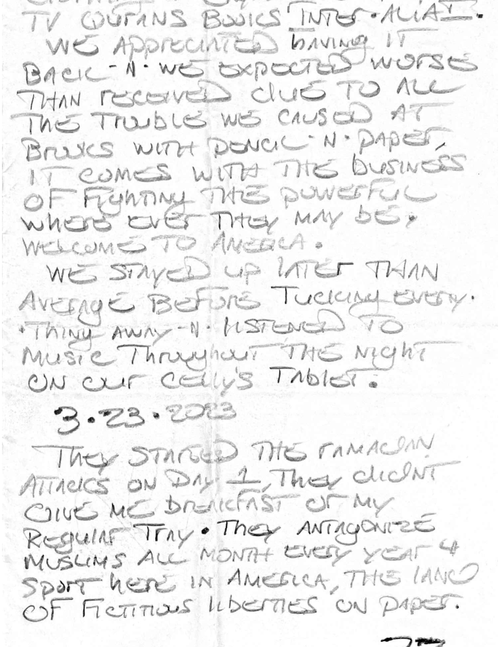 TV QURANS BOOKS INTER·ALIA I.
WE APPRECIATED having IT
BACK -N- WE EXPECTED WORSE
THAN received due TO ALL
THE Trouble WE CAUSED AT
Brooks WITH pencil -N- paper,
IT COMES WITH THE business
OF Fighting THE powerful
WHERE EVER THEY MAY BE.
WELCOME TO AMERICA.
WE STAYED UP LATER THAN
AVERAGE BEFORE Tucking every-
-Thing AWAY -N- LISTENED TO
Music Throughout THE Night
ON our Celly's Tablet.
3·23·2023
They STARTED THE RAMADAN
ATTACKS ON DAY 1, They didn't
GIVE ME breakfast or My
Regular Tray. They ANTAGONIZE
MUSLIMS ALL MONTH every year 4
Sport here IN AMERICA, THE LAND
OF Fictitious liberties ON paper.